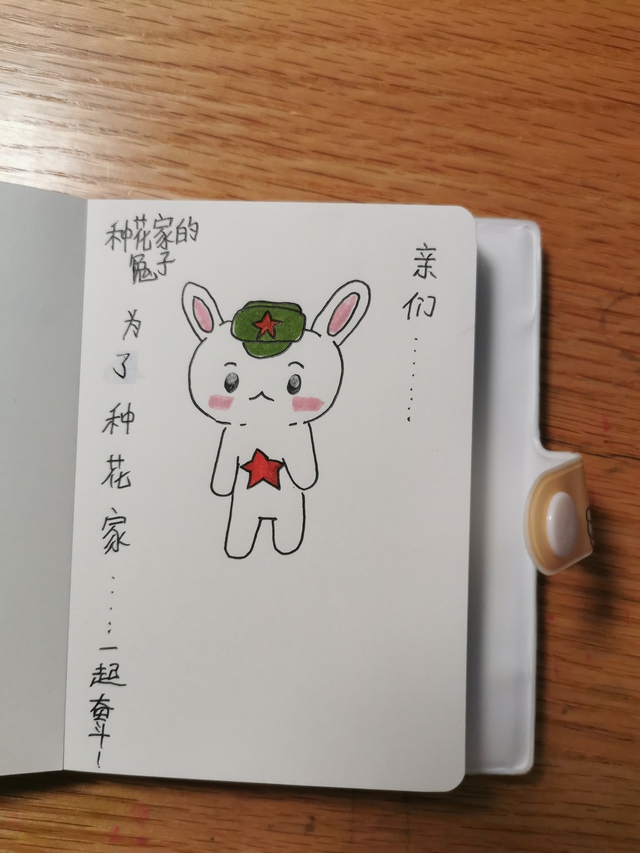 种花家的
兔子
亲们.......
为了种花家.....一起奋斗！